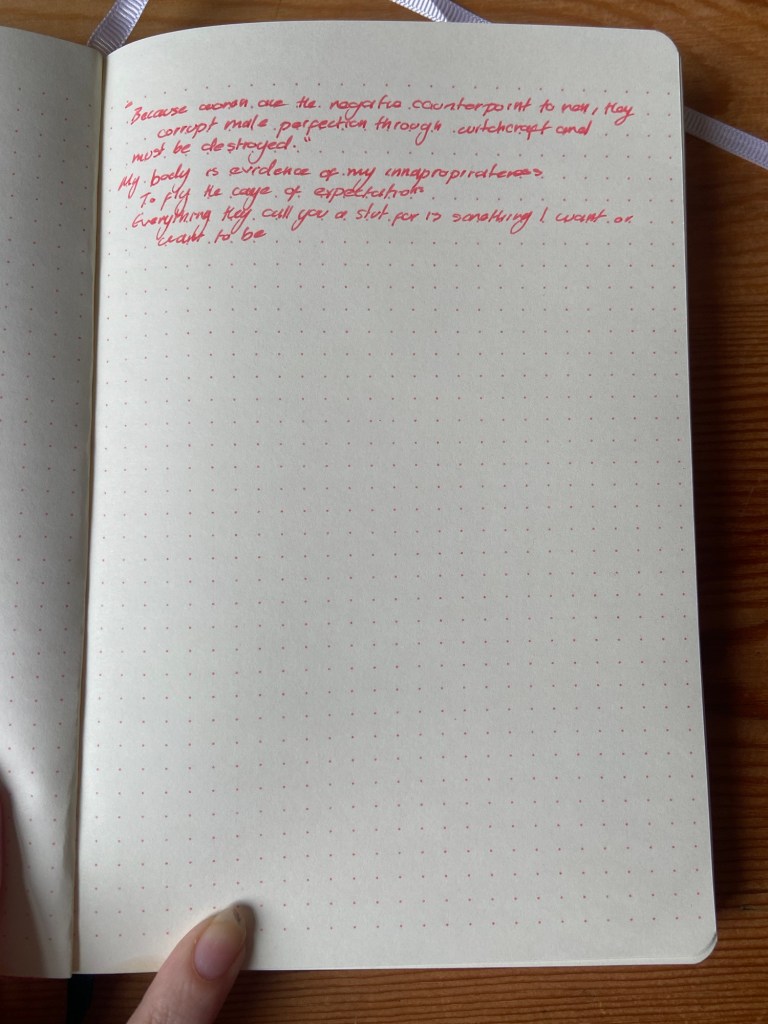 "Because women are the negative counterpoint to men, they
corrupt male perfection through witchcraft and
must be destroyed."
My body is evidence of my innapropirateness.
To fly the cage of expectations
Everything they call you a slut for is something I want or
want to be